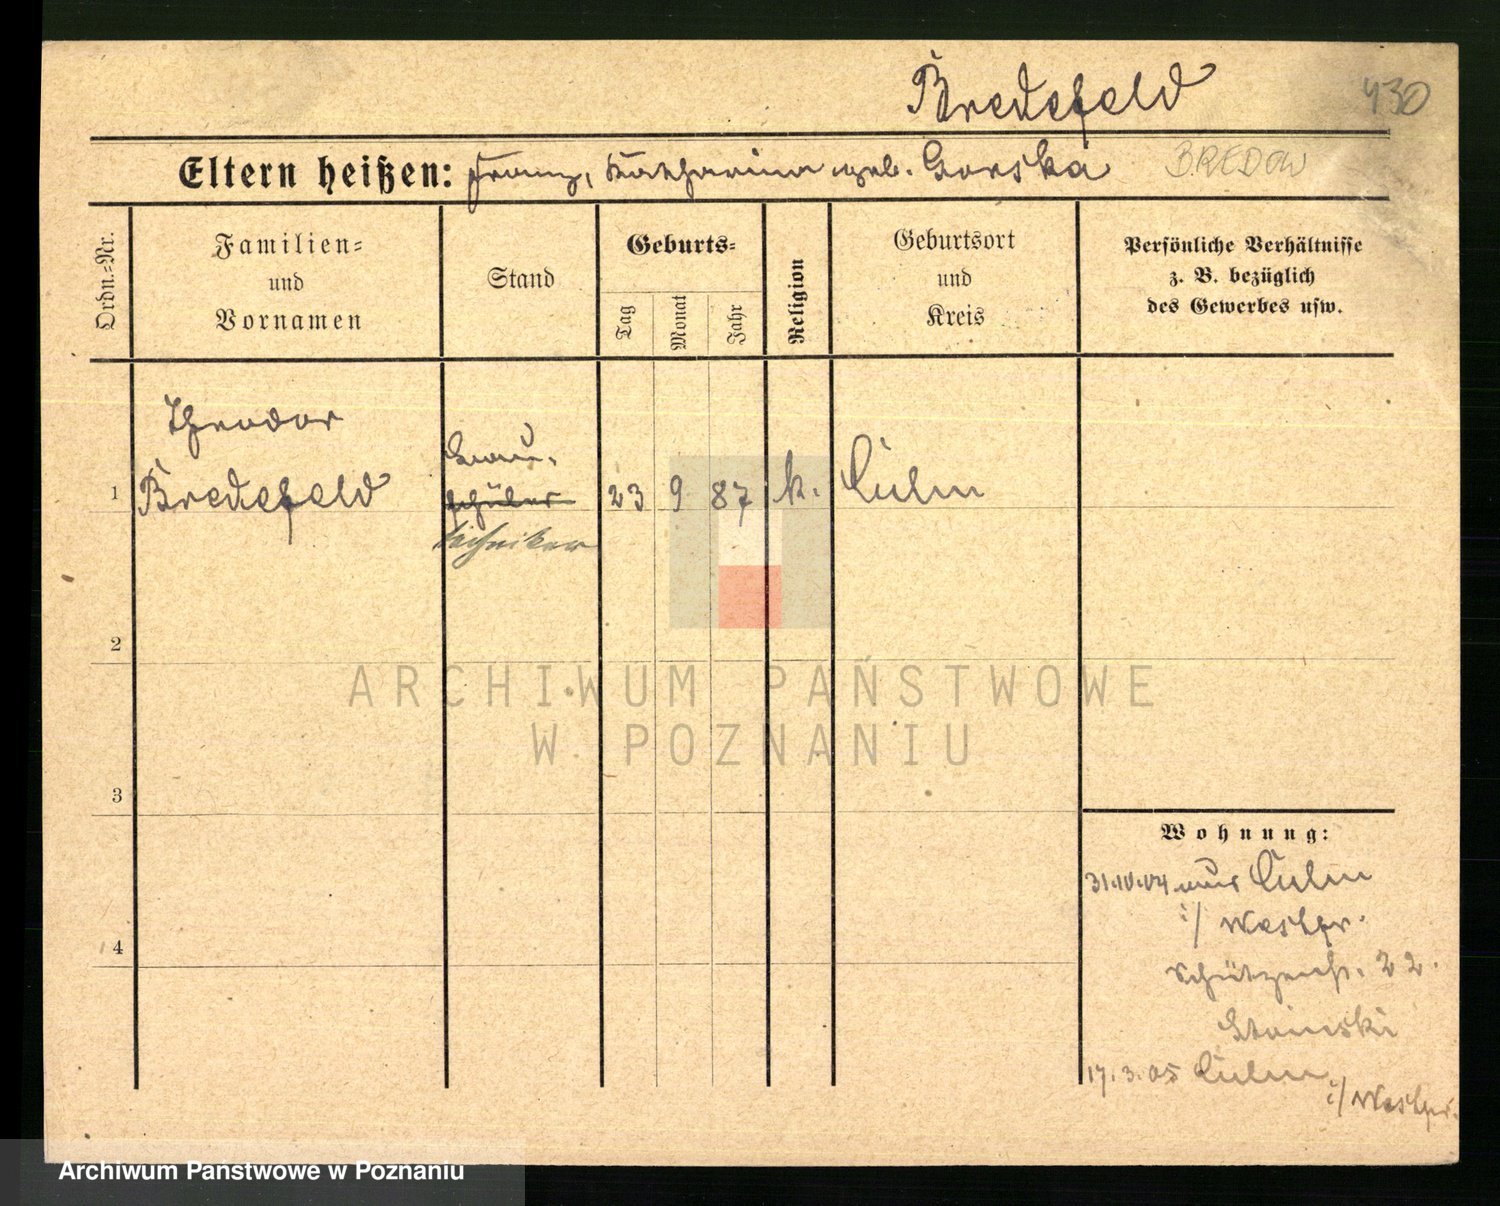 Bredefeld 430
Eltern heißen: Franz, Katharina geb. Gorska BREDOW
Ordn.-Nr.
Familien-
und
Vornamen
Stand
Geburts-
Tag
Monat
Jahr
Religion
Geburtsort
und
Kreis
Persönliche Verhältnisse
z. B. bezüglich
des Gewerbes usw.
Theodor
1 Bredefeld
Bau-
schüler
techniker
23 9 87 k. Culm
2
3
4
Wohnung:
31.10.04 aus Culm
i/ Westpr.
Schützenstr. 22.
17.3.05 Culm
i/ Westpr.
ARCHIWUM PAŃSTWOWE
W POZNANIU
Archiwum Państwowe w Poznaniu